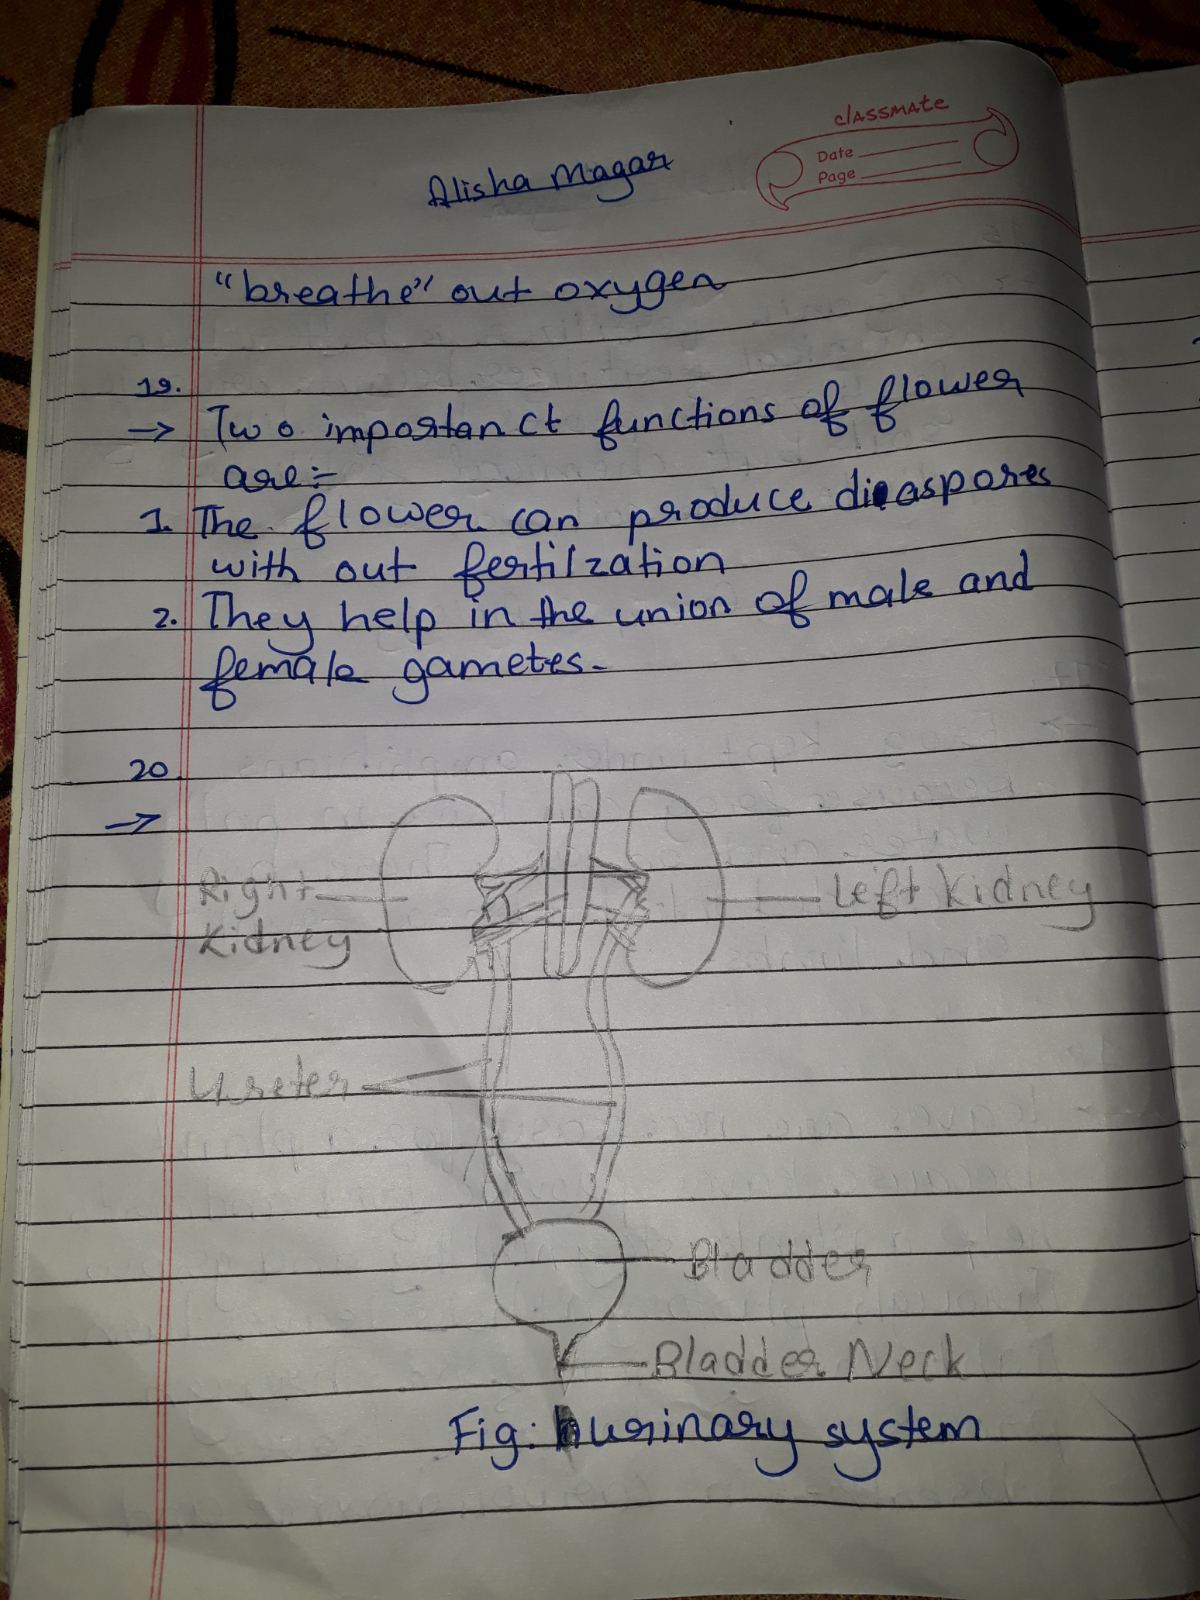 classmate
Date
Page
Alisha Magar
"breathe" out oxygen
19.
→ Two importanct functions of flower
are:-
1. The flower can produce diaspores
with out fertilzation
2. They help in the union of male and
female gametes.
20
→
Right
Kidney
Left Kidney
Ureter
Bladder
Bladder Neck
Fig: urinary system